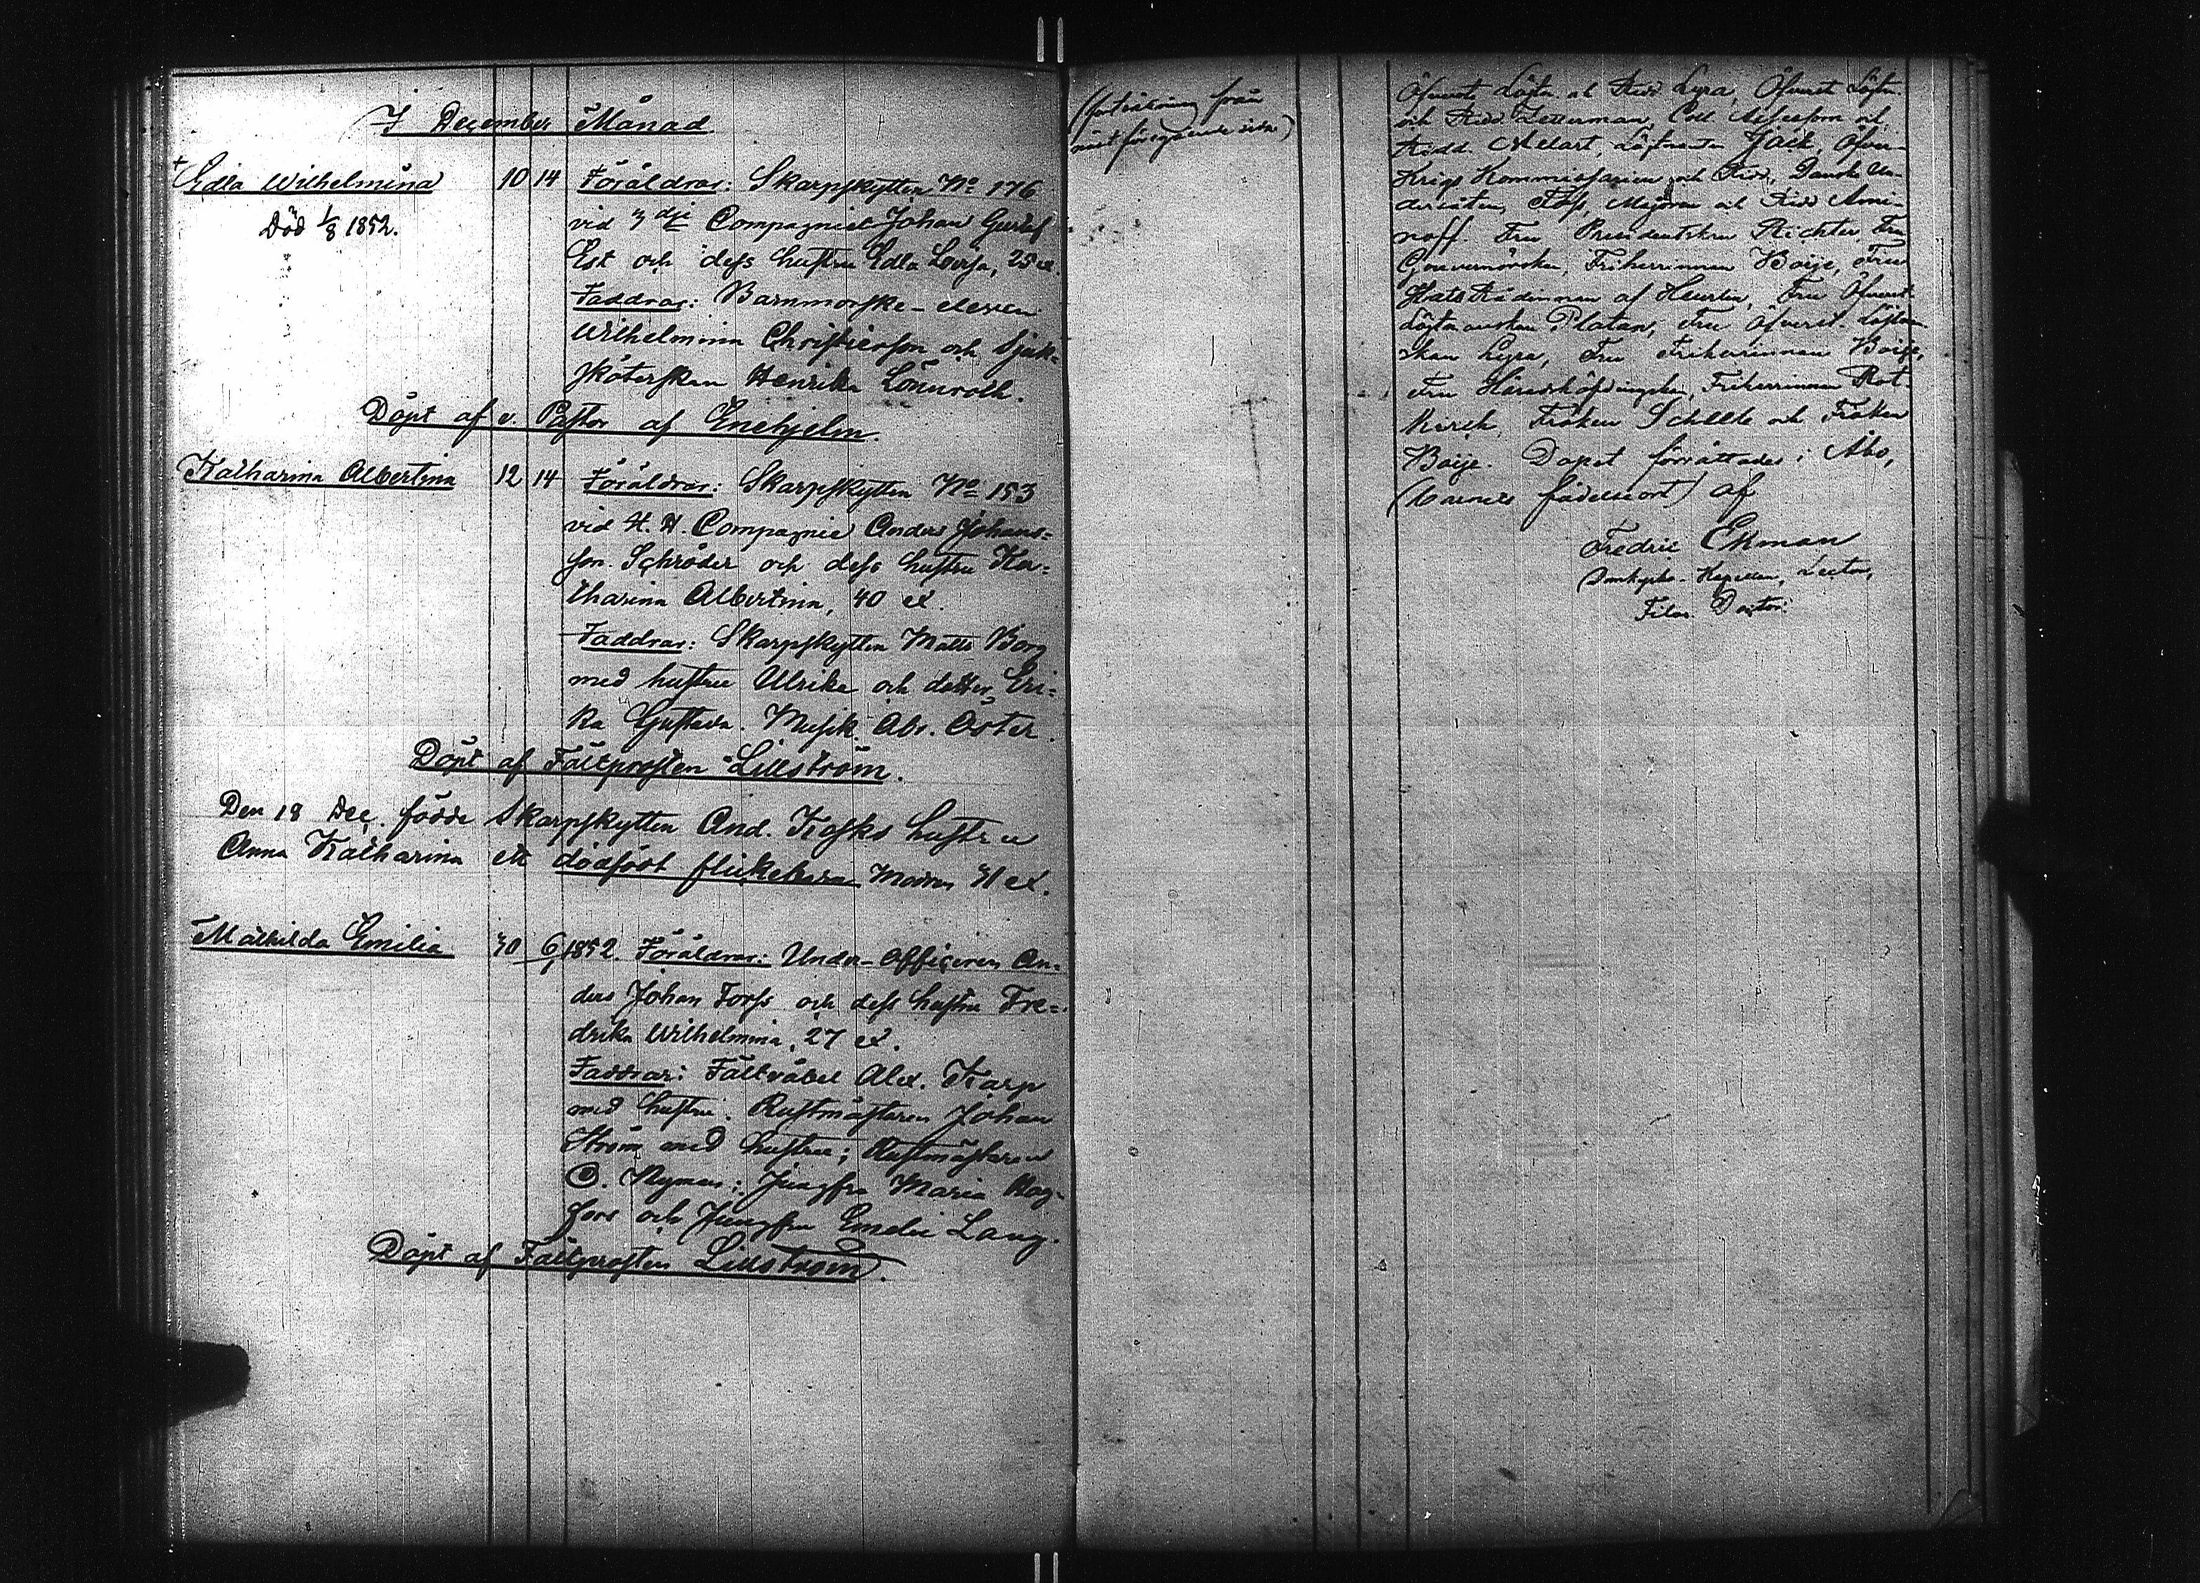 I December Månad
+ Edla Wilhelmina 10 14 Föräldrar: Skarpskytten No 176
Död 1/8 1852. vid 3dje Compagniet Johan Gustaf
Est och dess hustru Edla Lovisa, 25 ål.
Faddrar: Barnmorske-eleven
Wilhelmina Christierson och Sjuk-
sköterskan Henrika Lönnroth.
Döpt af v. Pastor af Enehjelm.
Katharina Albertina 12 14 Föräldrar: Skarpskytten No 153
vid H. H. Compagnie Anders Johans-
son Schröder och dess hustru Ka-
tharina Albertina, 40 ål.
Faddrar: Skarpskytten Matts Borg
med hustru Ulrika och dotter Eri-
ka Gustava. Musik. Abr. Öster.
Döpt af Fältprosten Lillström.
Den 18 Dec. födde Skarpskytten And. Kasks hustru
Anna Katharina ett dödfödt flickebarn Modren 31 ål.
Mathilda Emilia 30 6/1 1852. Föräldrar: Under-Officeren An-
ders Johan Forss och dess hustru Fre-
drika Wilhelmina, 27 ål.
Faddrar: Fältväbel Alex. Karp
med hustru. Rustmästaren Johan
Ström med hustru; Rustmästaren
C. Nyman; Jungfru Maria
och Jungfru Emelie Lang.
Döpt af Fältprosten Lillström.
(fortsättning från
näst föregående sida)
Öfverst Löjtn. och Ridd Lyra, Öfverst Löjtn.
och Ridd Zetterman, Coll Assessorn och
Ridd. Löjtnanten Jack, Öfver-
Krigs Kommissarien och Ridd,
Majoren och Ridd Ami-
noff. Fru Presidentskan Richter, Fru
Gouvernörskan, Friherrinnan Boije, Fru
Stats Rådinnan af Heurlin, Fru Öfverst
Löjtnantskan Platan, Fru Öfverst. Löjtnan-
skan Lyra, Fru Friherrinnan Boije,
Fru Häradshöfdingskan, Friherrinnan Rot-
kirch, Fröken och Fröken
Boije. Dopet förrättades i Åbo,
(barnets födelseort) af
Fredric Ekman
Domkyrko-Kapellan, Lector,
Filos. Doctor.